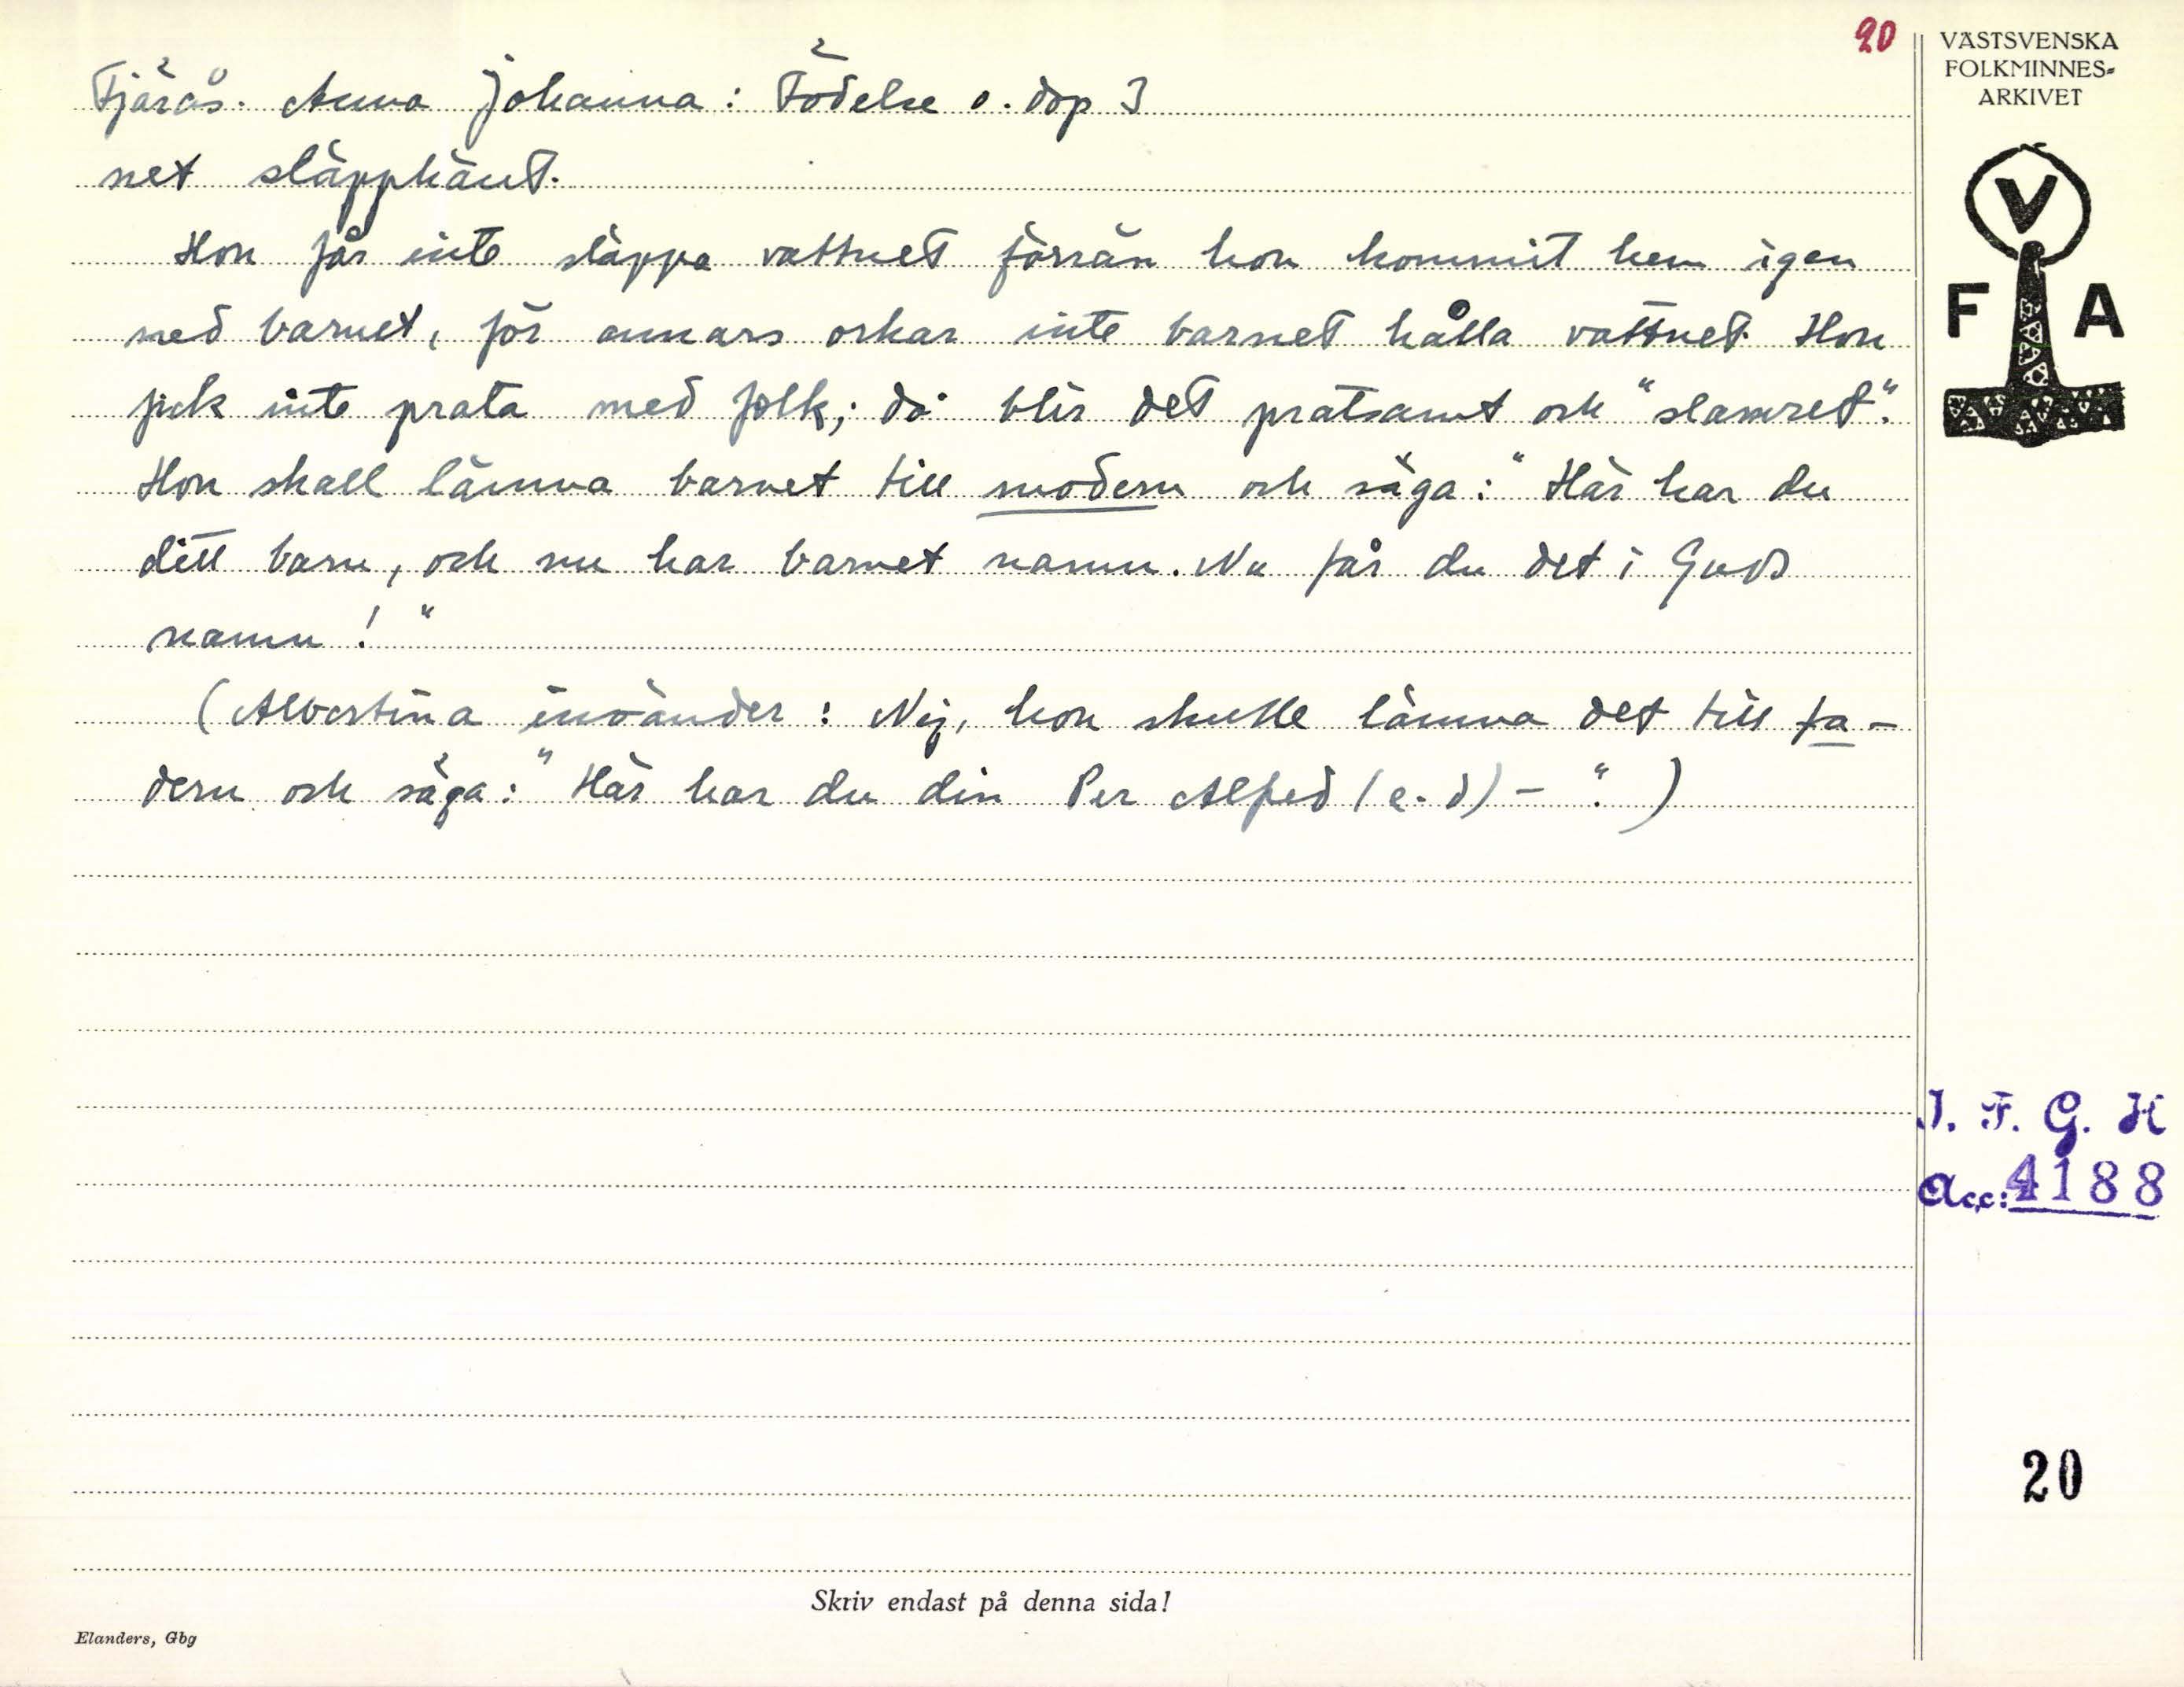 20
Fjärås. Anna Johanna: Födelse o. dop 3
net släpphänt.
Hon får inte släppa vattnet förrän hon kommit hem igen
med barnet, för annars orkar inte barnet hålla vattnet. Hon
fick inte prata med folk; då blir det pratsamt och "slamret".
Hon skall lämna barnet till modern och säga: "Här har du
ditt barn, och nu har barnet namn. Nu får du det i Guds
namn!"
(Albertina invänder: Nej, hon skulle lämna det till fa-
dern och säga: "Här har du din Per Alfred (e. d) - ".)
VÄSTSVENSKA
FOLKMINNES-
ARKIVET
V
F A
I. F. G. H
Acc: 4188
20
Skriv endast på denna sida!
Elanders, Gbg